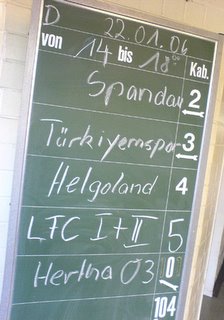 D 22.01.06
von 14 bis 18⁰⁰ Kab.
Spandau 2
Türkiyemspor 3
Helgoland 4
LFC I+II 5
Hertha 03 10
104